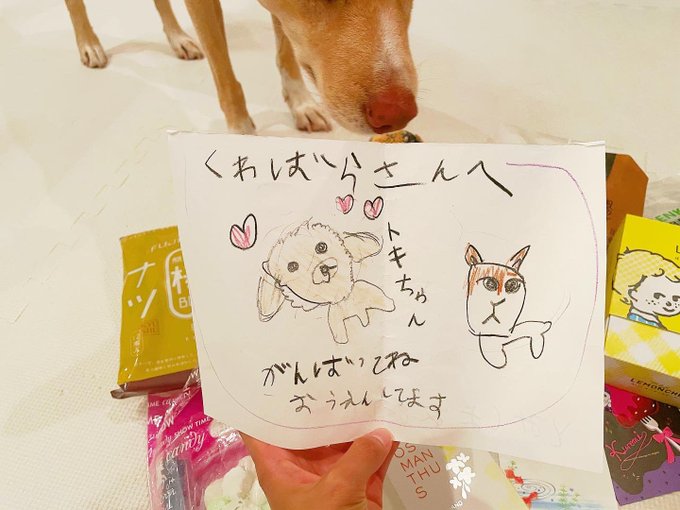 くわばらさんへ
トキちゃん
がんばってね
おうえんしてます
ナツ
SHOW TIME
candy
OS
MAN
THU
S
LEMON